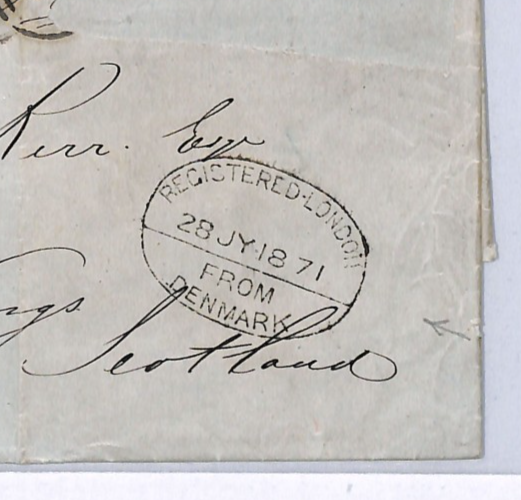 Kerr. Esqr
REGISTERED·LONDON
28 JY·18 71
FROM
DENMARK
Scotland